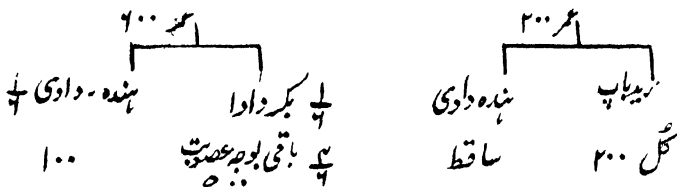 عمر ۲۰۰
زید باپ ہندہ دادی
کُل ۲۰۰ ساقط
عمر ۶۰۰
۱/۶ بکر دادا ہندہ - دادی ۱/۶
۴/۶ باقی بوجہ عصوبت ۱۰۰
۵۰۰